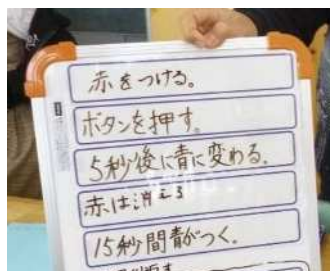 赤をつける。
ボタンを押す。
5秒後に青に変わる。
赤は消える
15秒間青がつく。